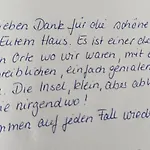 ieben Dank für die schöne
Eurem Haus. Es ist einer die
n Orte wo wir waren, mit d
reiblichen, einfach genialen
. Die Insel, klein, aber abw
ie nirgendwo!
mmen auf jeden Fall wied